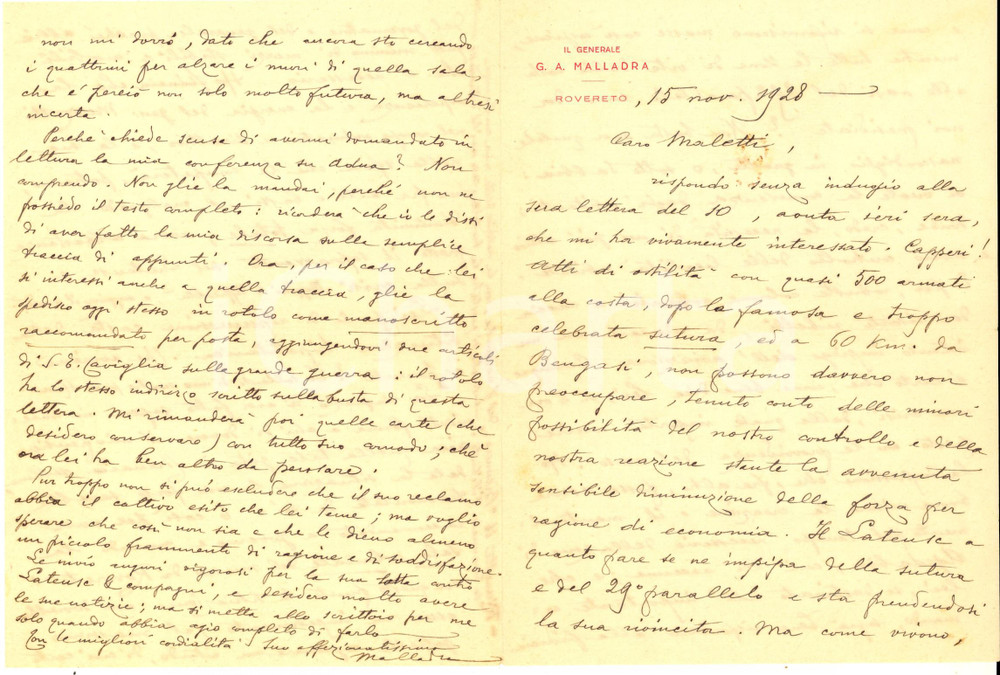 IL GENERALE
G. A. MALLADRA
ROVERETO, 15 nov. 1928
Caro Maletti,
rispondo senza indugio alla
sua lettera del 10, avuta ieri sera,
che mi ha vivamente interessato. Capperi!
Atti di ostilità con quasi 500 armati
alla costa, dopo la famosa e troppo
celebrata sutura, ed a 60 Km. da
Bengasi, non possono davvero non
preoccupare, tenuto conto delle minori
possibilità del nostro controllo e della
nostra reazione stante la avvenuta
sensibile diminuzione della forza per
ragione di economia. Il Lateusc a
quanto pare se ne impipa della sutura
e del 29° parallelo e sta prendendosi
la sua rivincita. Ma come vivono,
non mi dorrò, dato che ancora sto cercando
i quattrini per alzare i muri di quella sala,
che é perciò non solo molto futura, ma altresì
incerta.
Perché chiede scusa di avermi domandato in
lettura la mia conferenza su Adua? Non
comprendo. Non glie la mandai, perché non ne
possiedo il testo completo: ricorderà che io le dissi
di aver fatto la mia discorsa sulle semplice
traccia di appunti. Ora, per il caso che lei
si interessi anche a quella traccia, glie la
spedisco oggi stesso in rotolo come manoscritto
raccomandato per posta, aggiungendovi due articoli
di S. E. Caviglia sulla grande guerra: il rotolo
ha lo stesso indirizzo scritto sulla busta di questa
lettera. Mi rimanderà poi quelle carte (che
desidero conservare) con tutto suo comodo; ché
ora lei ha ben altro da pensare.
Pur troppo non si può escludere che il suo reclamo
abbia il cattivo esito che lei teme; ma voglio
sperare che così non sia e che le dieno almeno
un piccolo frammento di ragione e di soddisfazione.
Le invio auguri vigorosi per la sua lotta contro
Lateusc & compagni, e desidero molto avere
le sue notizie; ma si metta allo scrittoio per me
solo quando abbia agio completo di farlo
Con le migliori cordialità Suo affezionatissimo
Malladra